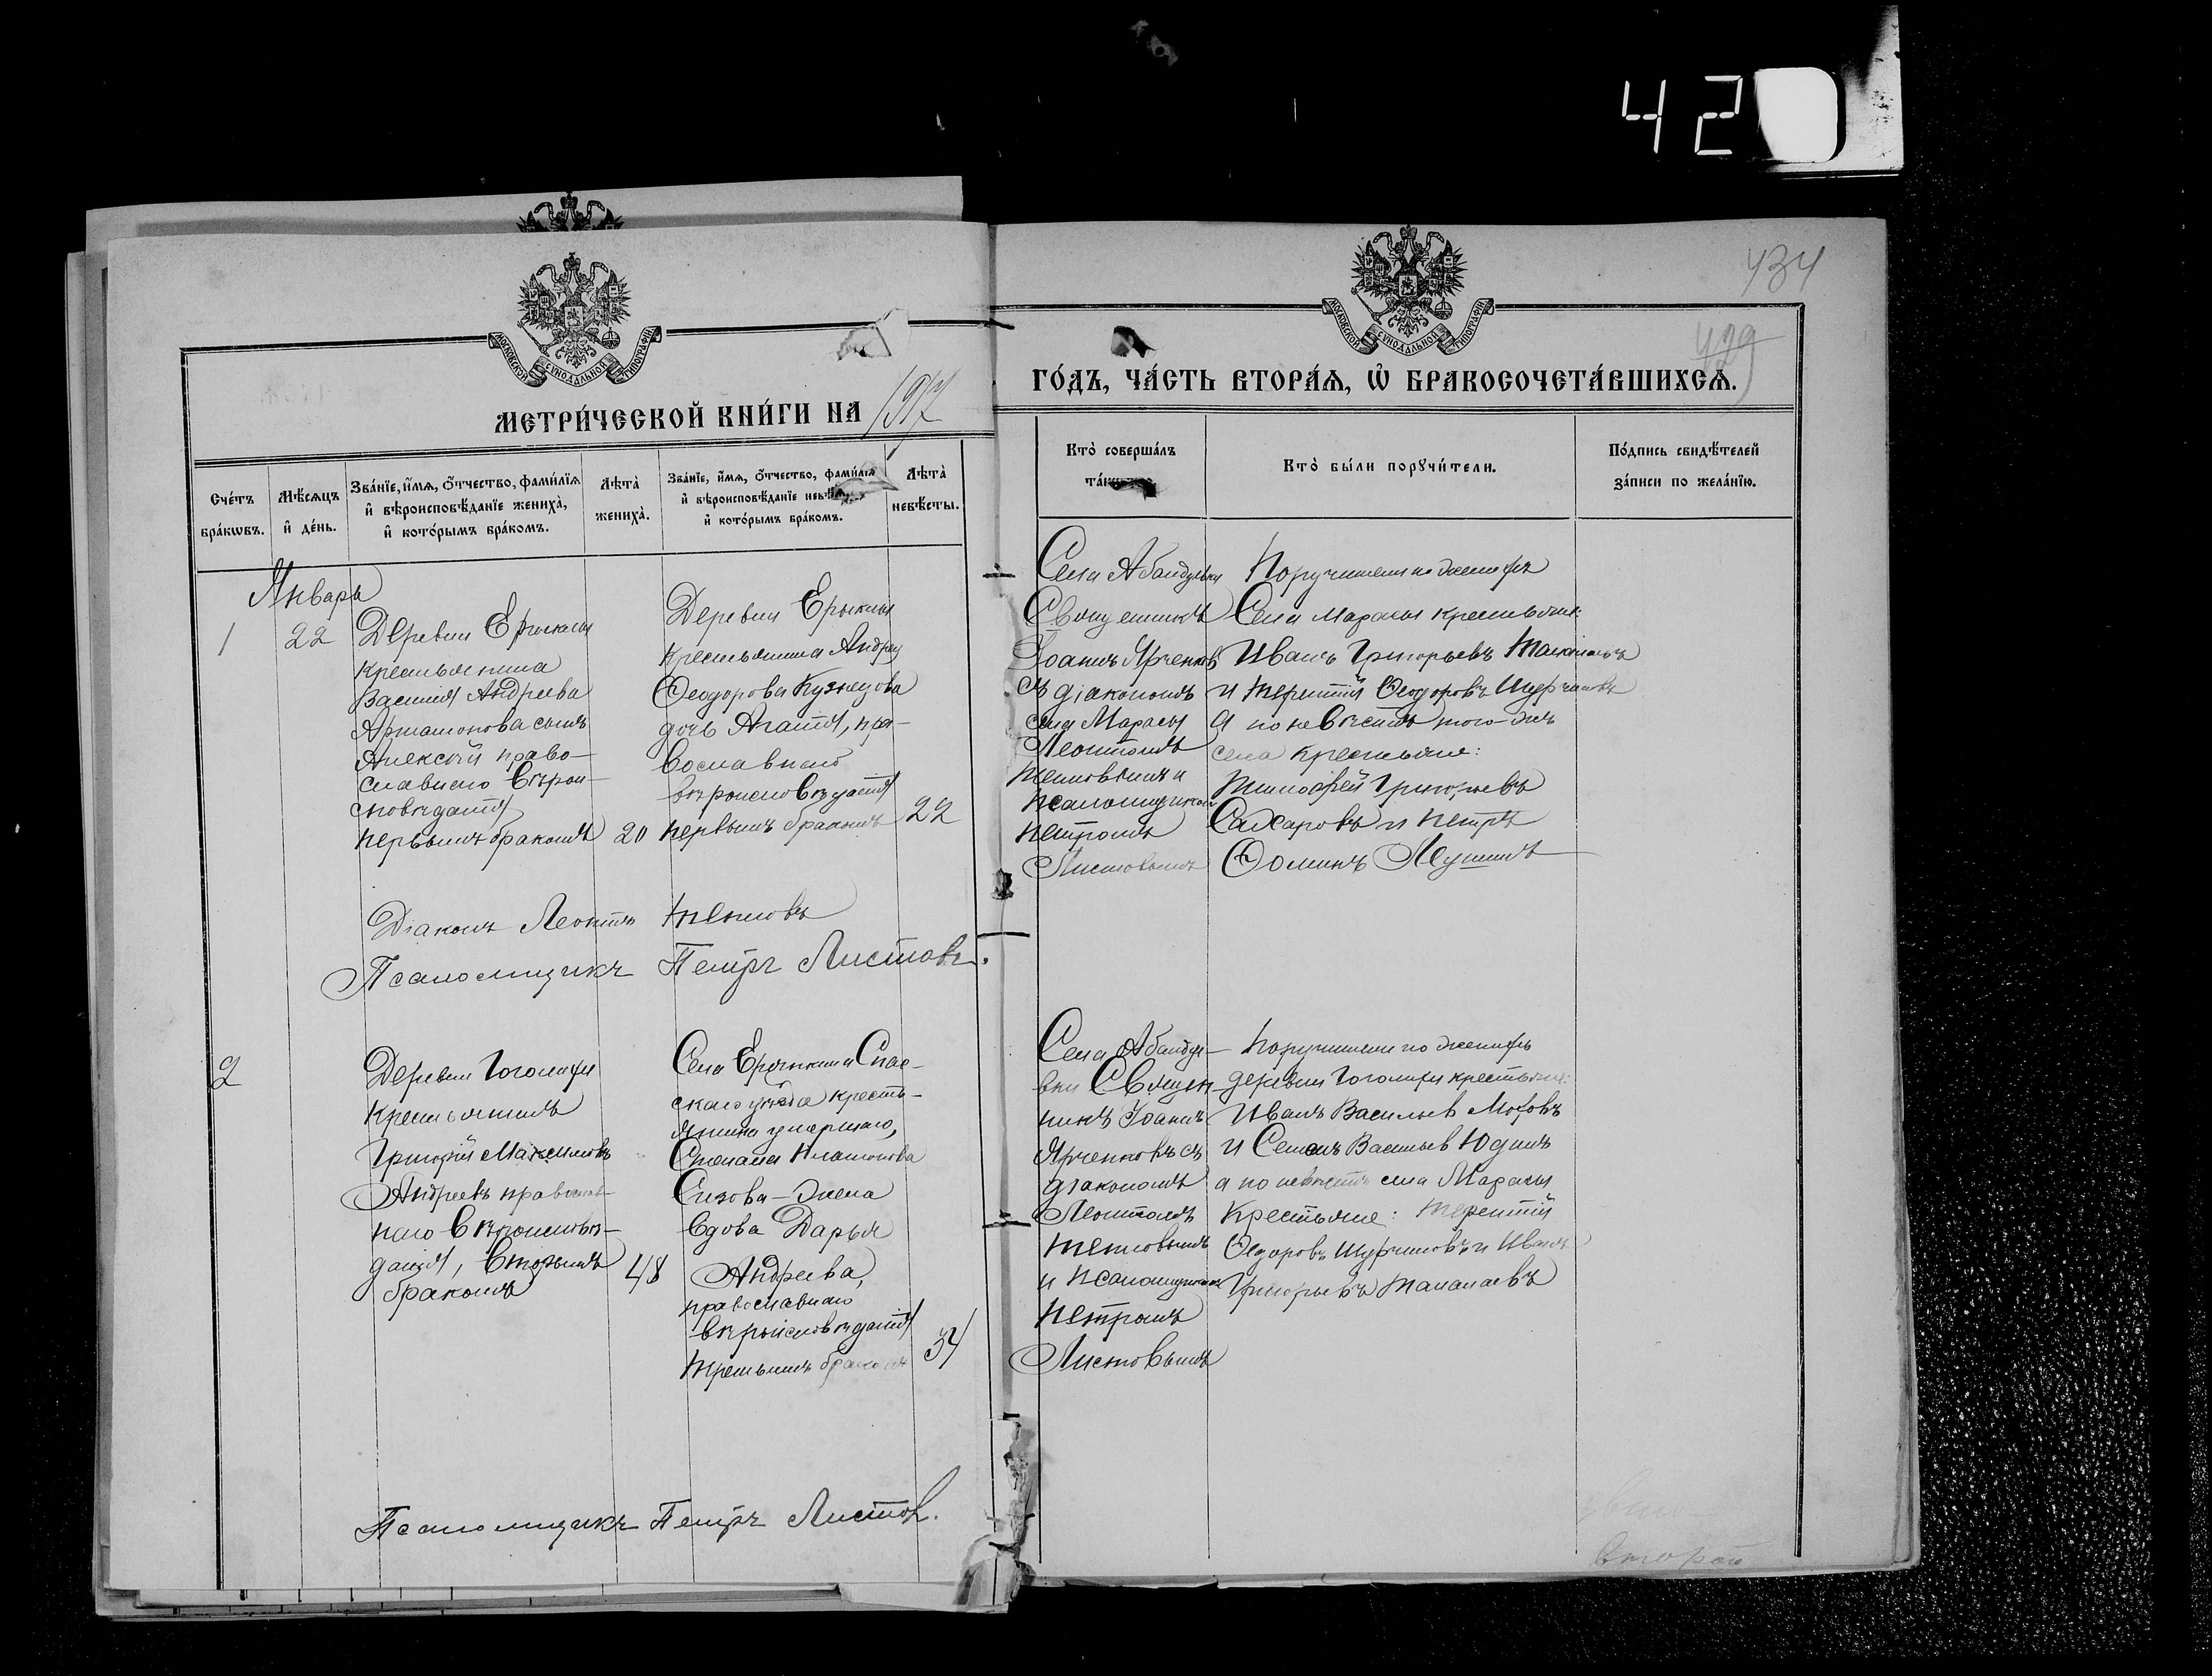 420
434
429
МОСКОВСКОЙ СѴНОДАЛЬНОЙ ТИПОГРАФІИ
МОСКОВСКОЙ СѴНОДАЛЬНОЙ ТИПОГРАФІИ
МЕТРИ́ЧЕСКОЙ КНИ́ГИ НА 1917
ГО́ДЪ, ЧА́СТЬ ВТОРА́Ѧ, Ѽ БРАКОСОЧЕТА́ВШИХСѦ.
Сче́тъ бра́кѡвъ.
Мѣ́сѧцъ и҆ де́нь.
Зва́нїе, и҆́мѧ, ѻ҆́тчество, фами́лїѧ и҆ вѣроисповѣ́данїе жениха̀, и҆ кото́рымъ бра́комъ.
Лѣ́та̀ жениха̀.
Зва́нїе, и҆́мѧ, ѻ҆́тчество, фами́лїѧ и҆ вѣроисповѣ́данїе невѣ́сты и҆ кото́рымъ бра́комъ.
Лѣ́та̀ невѣ́сты.
Кто̀ соверша́лъ та́инство.
Кто̀ бы́ли порꙋчи́тели.
По́дпись свидѣ́телей за́писи по жела́нїю.
Январь
1
22
Деревни Ерыклы
крестьянина
Василія Андреева
Артамонова сынъ
Алексѣй право-
славнаго вѣрои-
сповѣданія
первымъ бракомъ
20
Деревни Ерыклы
крестьянина Андрея
Ѳеодорова Кузнецова
дочь Агаѳія, пра-
вославнаго
вѣроисповѣданія
первымъ бракомъ
22
Села Абалдуевки
Священникъ
Іоаннъ Ярченковъ
съ діакономъ
села Марасы
Леонтіемъ
Тепловымъ и
псаломщикомъ
Петромъ
Листовымъ
Поручители по женихѣ
Села Марасы крестьяне:
Иванъ Григорьевъ Талалаевъ
и Терентій Ѳеодоровъ
а по невѣстѣ того-же
села крестьяне:
Тимоѳей Григорьевъ
Сахаровъ и Петръ
Ѳоминъ
Діаконъ Леонтій Тепловъ
Псаломщикъ Петръ Листовъ.
2
Деревни Гоголихи
Крестьянинъ
Григорій Максимовъ
Андреевъ православ-
наго вѣроисповѣ-
данія, вторымъ
бракомъ
48
Села Ерыклинъ Спас-
скаго уѣзда кресть-
янина умершаго,
Степана Платонова
Сизова - жена
вдова Дарья
Андреева,
православнаго
вѣроисповѣданія
третьимъ бракомъ
34
Села Абалдуе-
вки Священ-
никъ Іоаннъ
Ярченковъ съ
діакономъ
Леонтіемъ
Тепловымъ
и псаломщикомъ
Петромъ
Листовымъ
Поручители по женихѣ
деревни Гоголихи крестьяне:
Иванъ Васильев Моховъ
и Семенъ Васильев Юдинъ
а по невѣстѣ села Марасы
Крестьяне: Терентій
Ѳедоровъ и Иванъ
Григорьевъ Талалаевъ
Псаломщикъ Петръ Листов.
второй